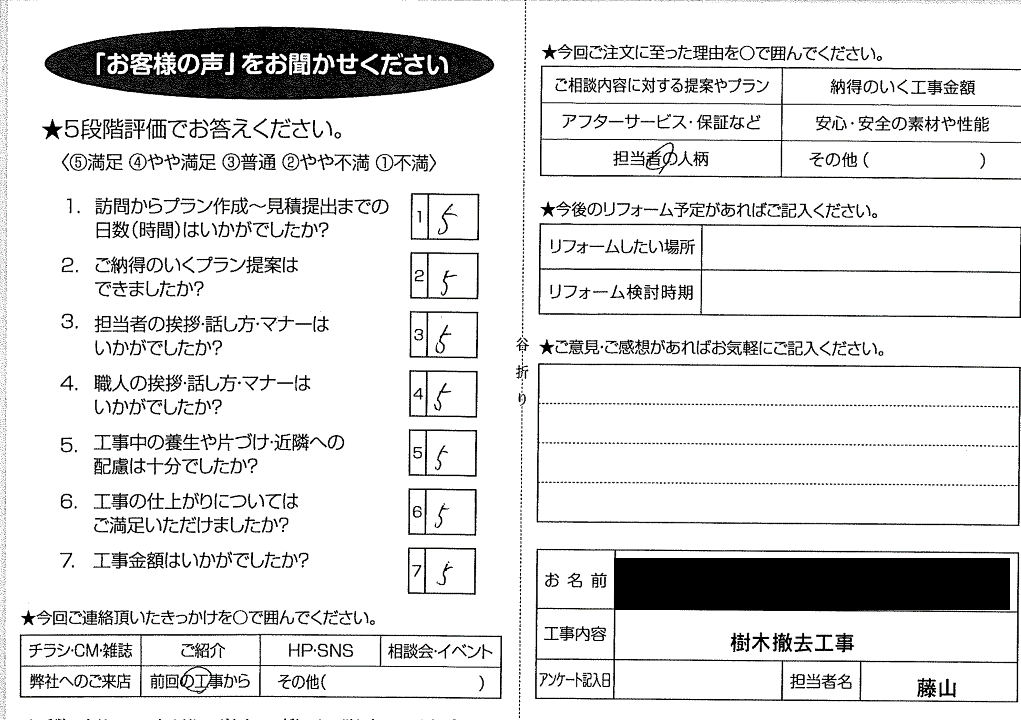 「お客様の声」をお聞かせください
★5段階評価でお答えください。
〈⑤満足 ④やや満足 ③普通 ②やや不満 ①不満〉
1. 訪問からプラン作成～見積提出までの
日数(時間)はいかがでしたか?
1 5
2. ご納得のいくプラン提案は
できましたか?
2 5
3. 担当者の挨拶・話し方・マナーは
いかがでしたか?
3 5
4. 職人の挨拶・話し方・マナーは
いかがでしたか?
4 5
5. 工事中の養生や片づけ・近隣への
配慮は十分でしたか?
5 5
6. 工事の仕上がりについては
ご満足いただけましたか?
6 5
7. 工事金額はいかがでしたか?
7 5
★今回ご連絡頂いたきっかけを○で囲んでください。
チラシ・CM・雑誌 ご紹介 HP・SNS 相談会・イベント
弊社へのご来店 前回の工事から その他( )
谷折り
★今回ご注文に至った理由を○で囲んでください。
ご相談内容に対する提案やプラン 納得のいく工事金額
アフターサービス・保証など 安心・安全の素材や性能
担当者の人柄 その他( )
★今後のリフォーム予定があればご記入ください。
リフォームしたい場所
リフォーム検討時期
★ご意見・ご感想があればお気軽にご記入ください。
お名前
工事内容 樹木撤去工事
アンケート記入日 担当者名 藤山